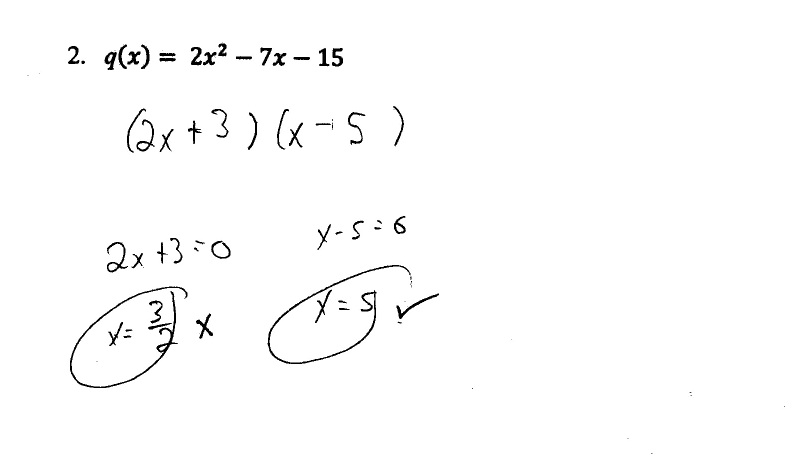 2. q(x) = 2x² – 7x – 15
(2x + 3) (x - 5)
2x + 3 = 0
x - 5 = 6
x = 3/2 x
x = 5 ✓